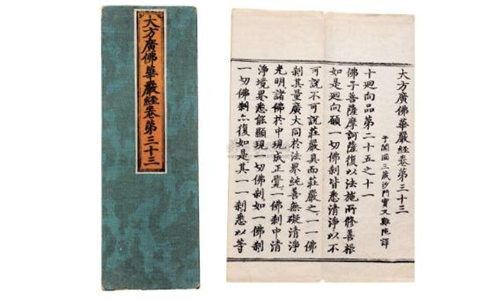 大方廣佛華嚴經卷第三十三
大方廣佛華嚴經卷第三十三
于闐國三藏沙門實叉難陀譯
十迴向品第二十五之十一
佛子菩薩摩訶薩復以法施所修善根
如是迴向願一切佛剎皆悉清淨以不
可說不可說莊嚴具而莊嚴之一一佛
剎其量廣大同於法界純善無礙清淨
光明諸佛於中現成正覺一佛剎中清
淨境界悉能顯現一切佛剎如一佛剎
一切佛剎亦復如是其一一剎悉以等